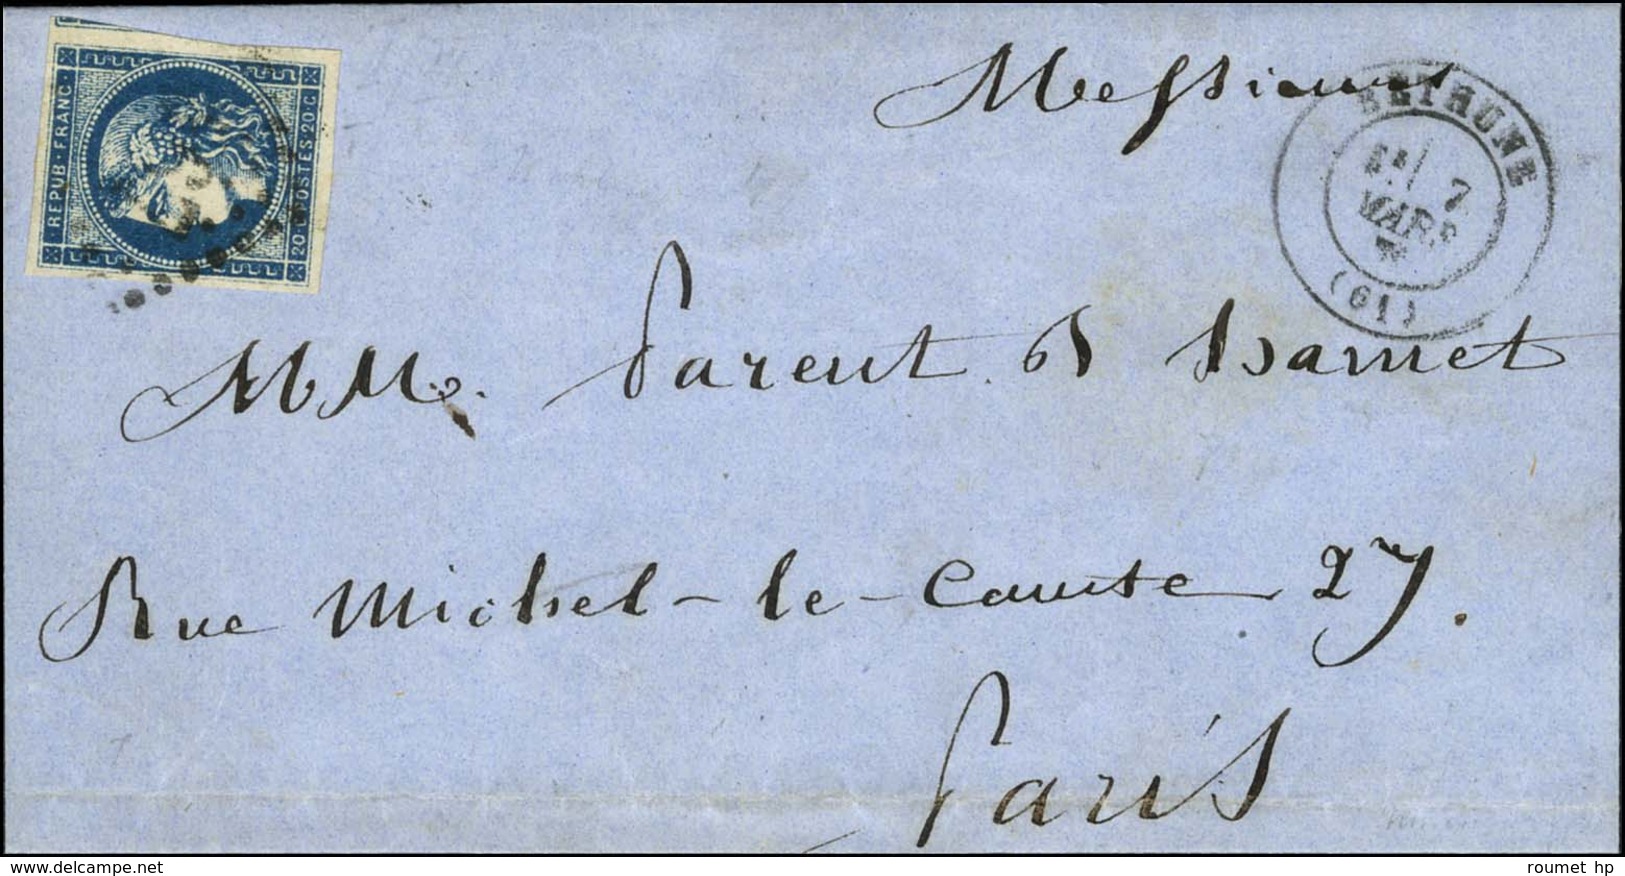 REPUB · FRANC ·
20 · C POSTES · 20 · C
Messieurs
BETHUNE
7
MARS
(61)
MM. Parent & Hamet
Rue Michel-le-Comte 27.
Paris
roumet hp